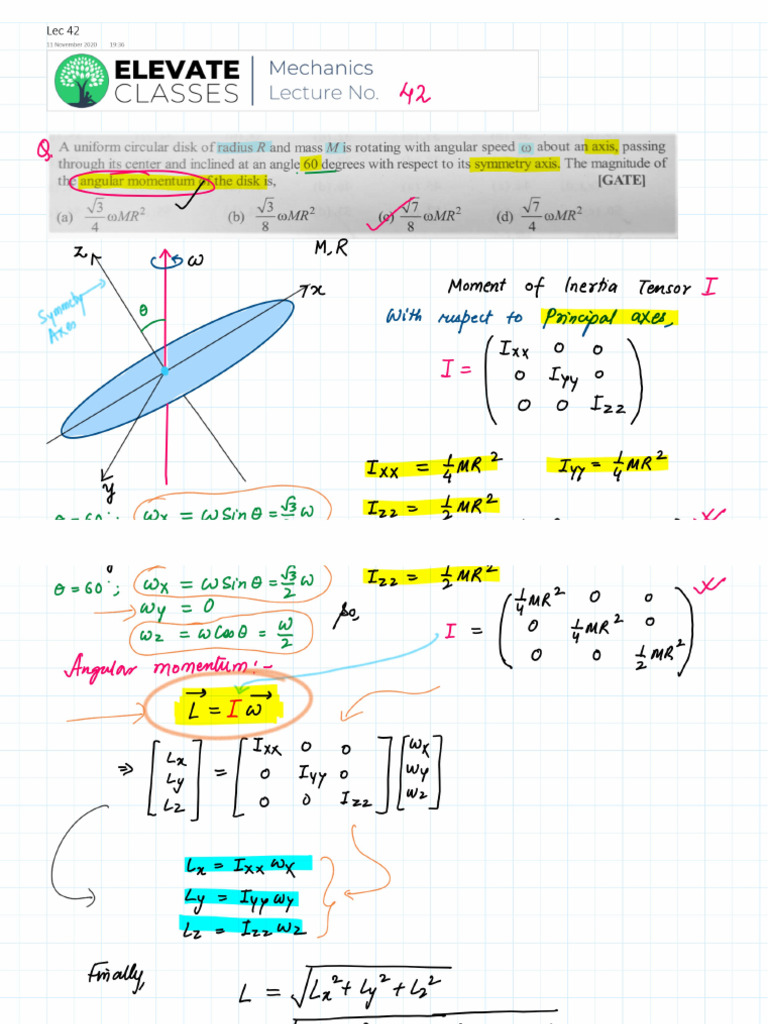 Lec 42
13 November 2020 19:36
ELEVATE CLASSES
Mechanics
Lecture No. 42
Q. A uniform circular disk of radius R and mass M is rotating with angular speed ω about an axis, passing
through its center and inclined at an angle 60 degrees with respect to its symmetry axis. The magnitude of
the angular momentum of the disk is, [GATE]
(a) √3/4 ωMR² (b) √3/8 ωMR² (c) √7/8 ωMR² (d) √7/4 ωMR²
M, R
z ω x
θ
Symmetry
Axes
y
Moment of Inertia Tensor I
With respect to Principal axes,
I = ( Ixx 0 0
0 Iyy 0
0 0 Izz )
Ixx = 1/4 MR² Iyy = 1/4 MR²
Izz = 1/2 MR²
θ = 60°; ωx = ω Sin θ = √3/2 ω
Izz = 1/2 MR²
θ = 60°; ωx = ω Sin θ = √3/2 ω
ωy = 0
ωz = ω Cos θ = ω/2
So,
I = ( 1/4 MR² 0 0
0 1/4 MR² 0
0 0 1/2 MR² )
Angular momentum:-
L⃗ = I ω⃗
⇒ [ Lx Ly Lz ] = [ Ixx 0 0
0 Iyy 0
0 0 Izz ] [ ωx ωy ωz ]
Lx = Ixx ωx
Ly = Iyy ωy
Lz = Izz ωz
Finally,
L = √(Lx² + Ly² + Lz²)